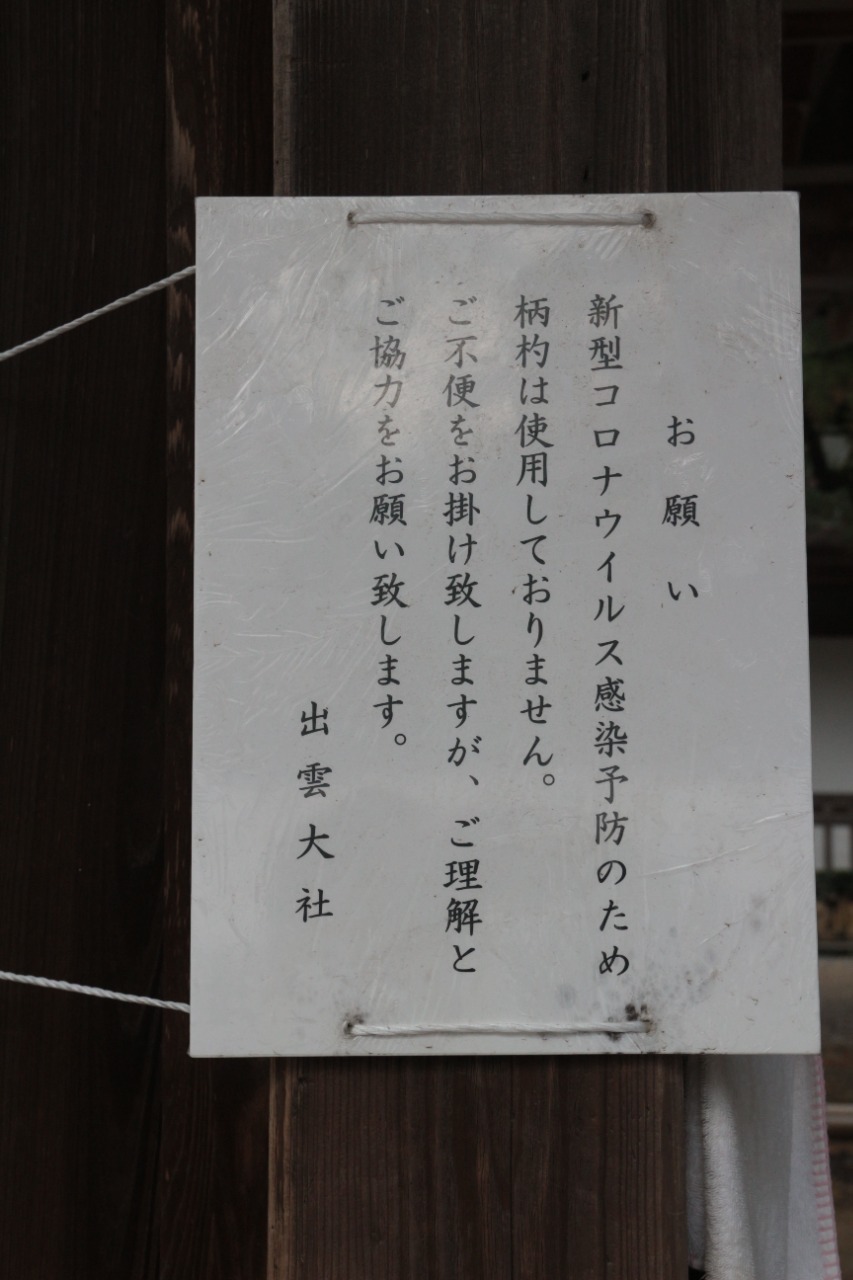 お願い
新型コロナウイルス感染予防のため
柄杓は使用しておりません。
ご不便をお掛け致しますが、ご理解と
ご協力をお願い致します。
出雲大社